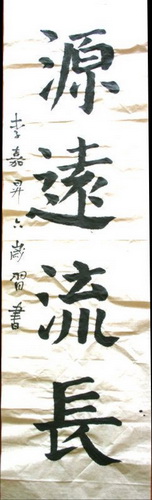 源遠流長
李嘉昇六歲習書